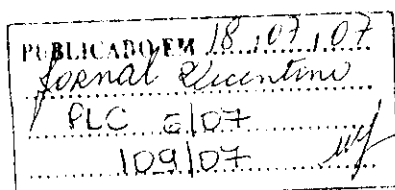 PUBLICADO EM 18/07/07
Jornal Vicentino
PLC 6/07
109/07